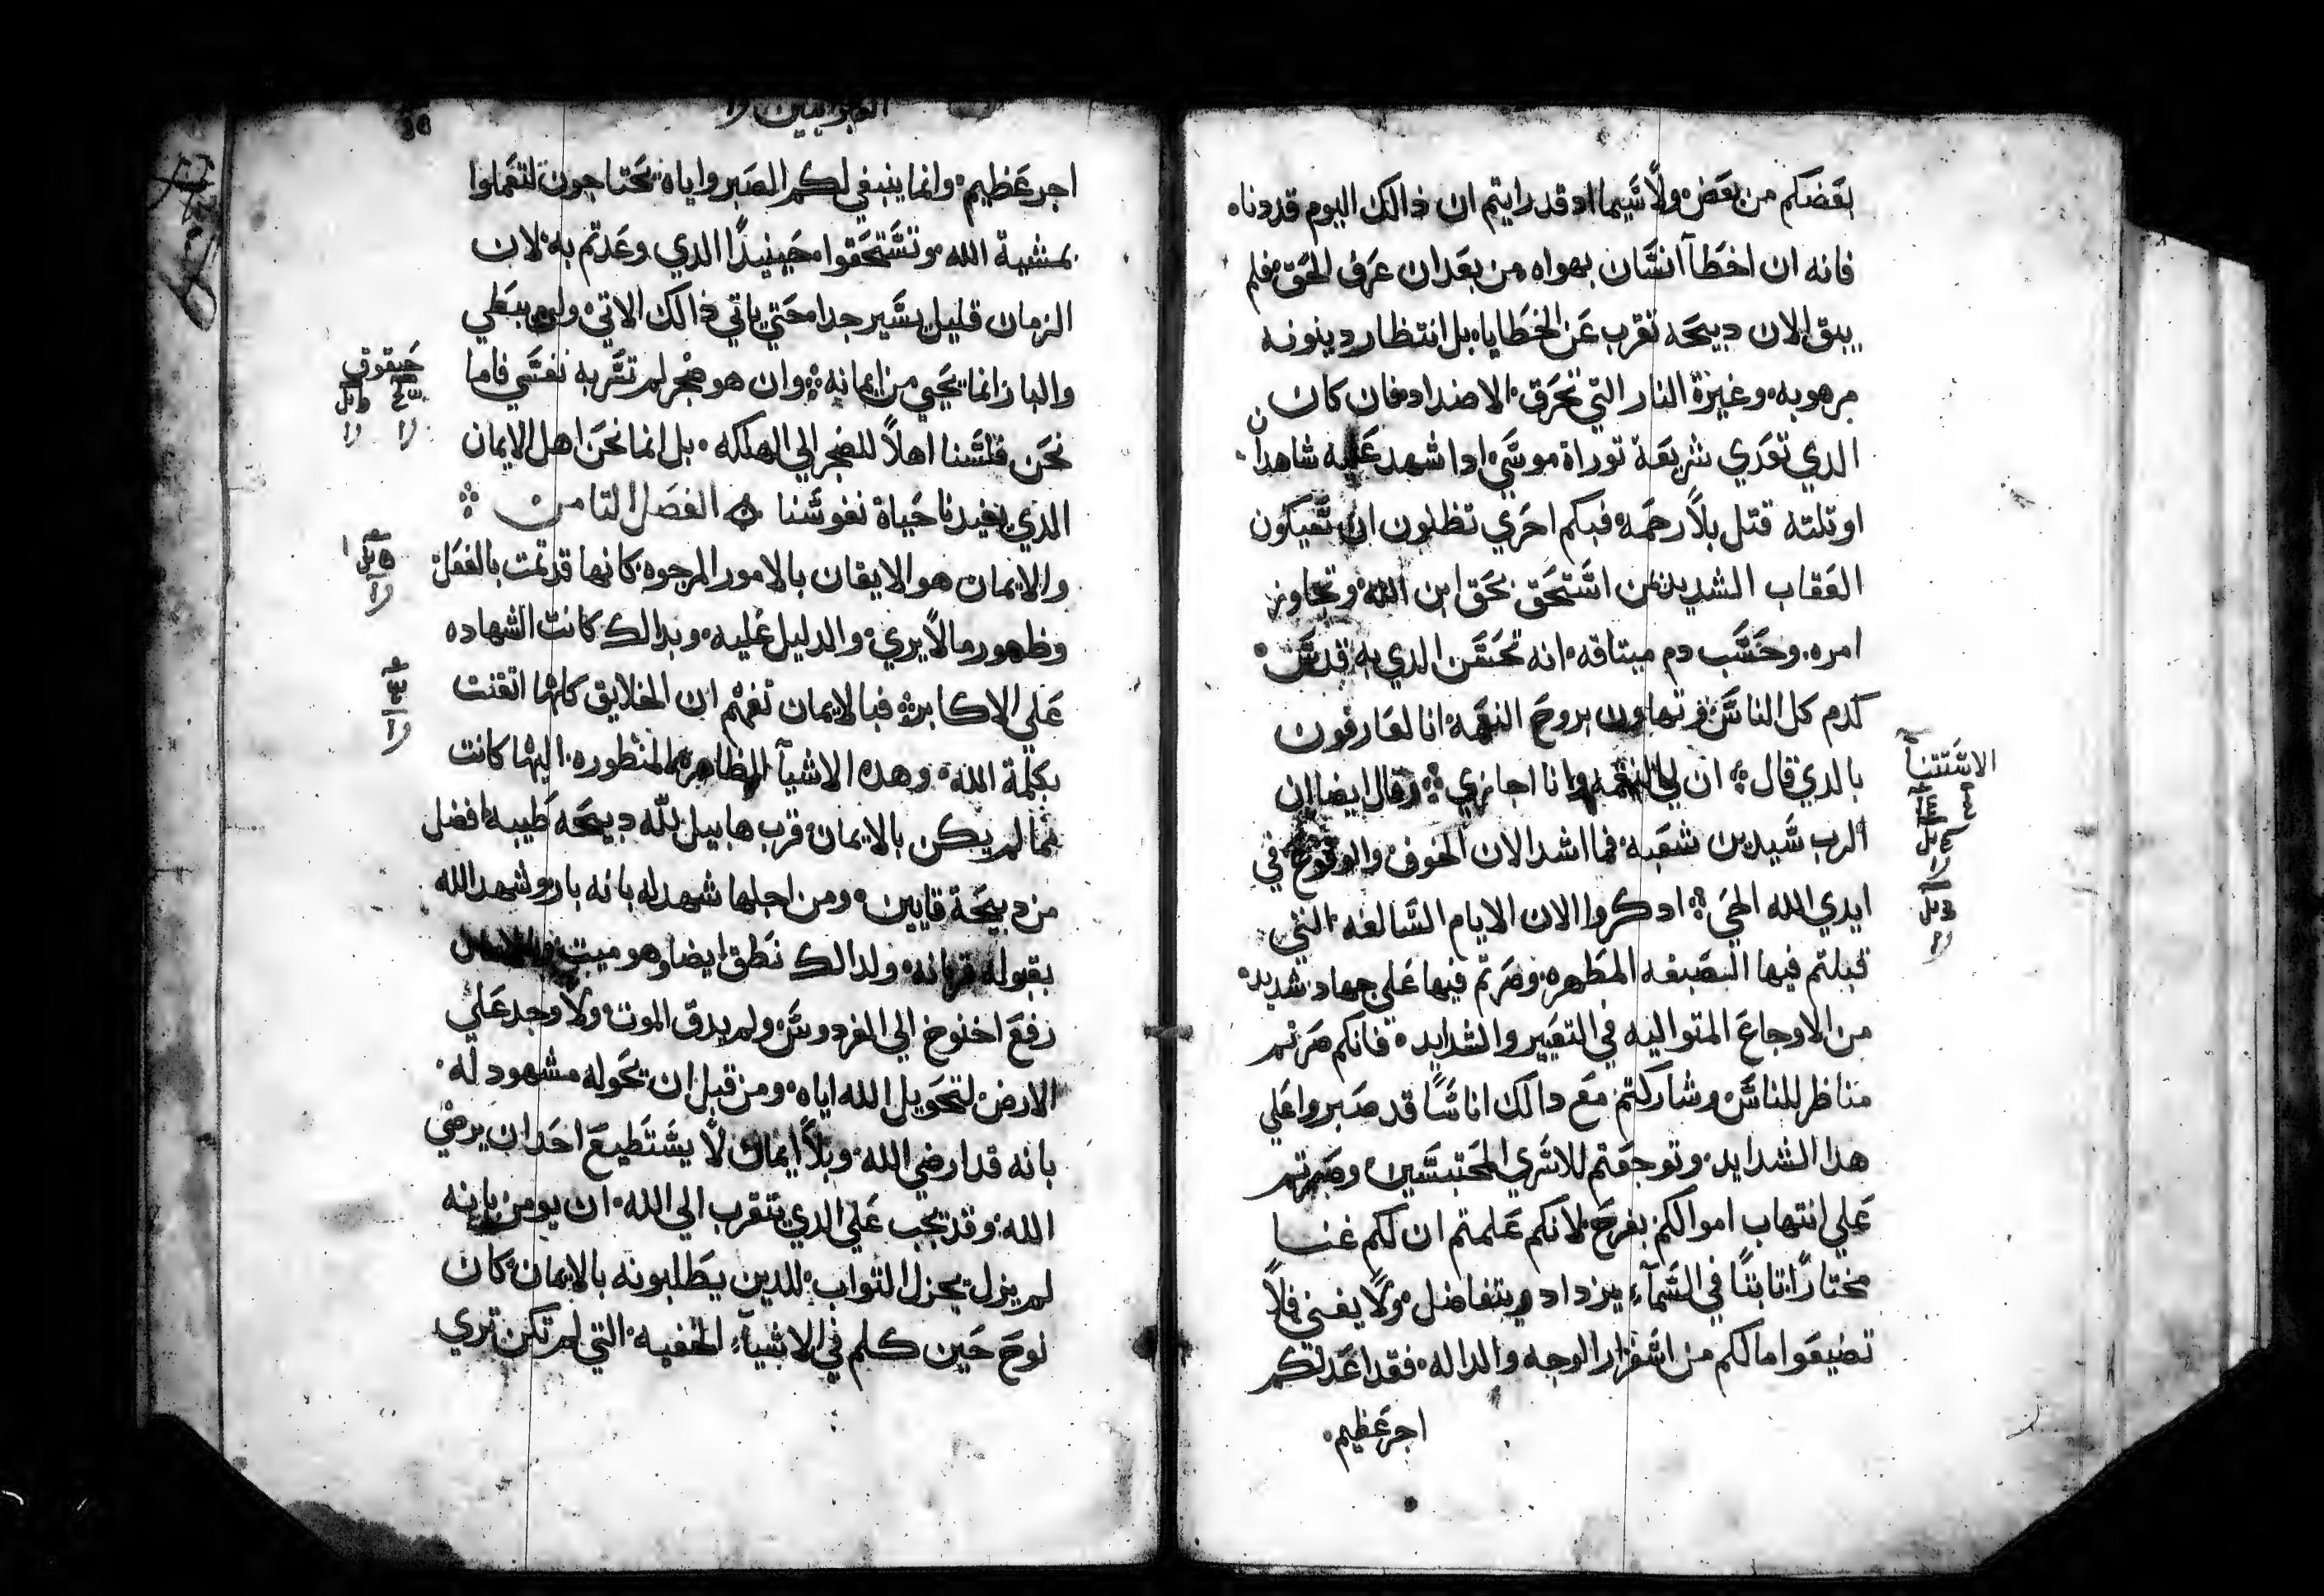 بعضكم من بعض ولا سيما اد قد رايتم ان ذالك اليوم قد دناه
فانه ان اخطا انسان بهواه من بعد ان عرف الحق فلم
يبق الان دبيحه تقرب عن الخطايا بل انتظار دينونه
مرهوبه وغيرة النار التي تحرق الاضداد فان كان
الدي تعدي شريعة توراة موسي ادا شهد عليه شاهدان
او تلته قتل بلا رحمه فبكم احري تظنون ان سيكون
العقاب الشديد لمن استحق بحق ابن الله وتجاوز
امره وحسب دم ميتاقه انه تحسن الدي به قدس
كدم كل الناس وتهاون بروح النعمه انا لعارفون
بالدي قال ان لي النقمه وانا اجازي وقال ايضا ان
الرب سيدين شعبه فما اشد الان الخوف والوقوع في
ايدي الله الحي ادكروا الان الايام السالفه التي
قبلتم فيها الصبغه المطهره وصرتم فيها علي جهاد شديد
من الاوجاع المتواليه في التعيير والشدايد فانكم صرتم
مناظر للناس وشاركتم مع دالك اناسا قد صبروا علي
هدا الشدايد وتوجعتم للاسري المحتبسين وصبرتم
علي انتهاب اموالكم بفرح لانكم علمتم ان لكم غنا
مختارا تابتا في السمآء يزداد ويتفاضل ولا يفني فلا
تضيعوا مالكم من اسفرار الوجه والداله فقد اعد لكم
اجر عظيم
الاستتنا
اجر عظيم وانما ينبغي لكم الصبر واياه تحتاجون لتعملوا
بمشية الله وتستحقوا حينيدا الدي وعدتم به لان
الزمان قليل يسير جدا حتي ياتي ذالك الاتي ولن يبطي
والبار انما يحيي من ايمانه وان هو ضجر لم تسر به نفسي فاما
نحن فلسنا اهلا للضجر الي الهلكه بل انما نحن اهل الايمان
الدي يفيدنا حياة نفوسنا الفصل التامن
والايمان هو الايقان بالامور المرجوه كانها قد تمت بالفعل
وظهور ما لا يري والدليل عليه وبدالك كانت الشهاده
علي الاكابر فبالايمان تفهم ان الخلايق كلها اتقنت
بكلمة الله وهده الاشيآ الظاهره المنظوره اليها كانت
مما لم يكن بالايمان قرب هابيل لله دبيحه طيبه افضل
من دبيحة قايين ومن اجلها شهد له بانه بار وشهد الله
بقبوله قربانه ولدالك نطق ايضا وهو ميت وبالايمان
رفع اخنوخ الي الفردوس ولم يدق الموت ولا وجد علي
الارض لتحويل الله اياه ومن قبل ان تحوله مشهود له
بانه قد ارضي الله وبلا ايمان لا يستطيع احد ان يرضي
الله وقد يجب علي الدي يتقرب الي الله ان يومن بانه
لم يزل يجزل التواب للدين يطلبونه بالايمان كان
نوح حين كلم في الاشيآء الخفيه التي لم تكن تري
حبقوق